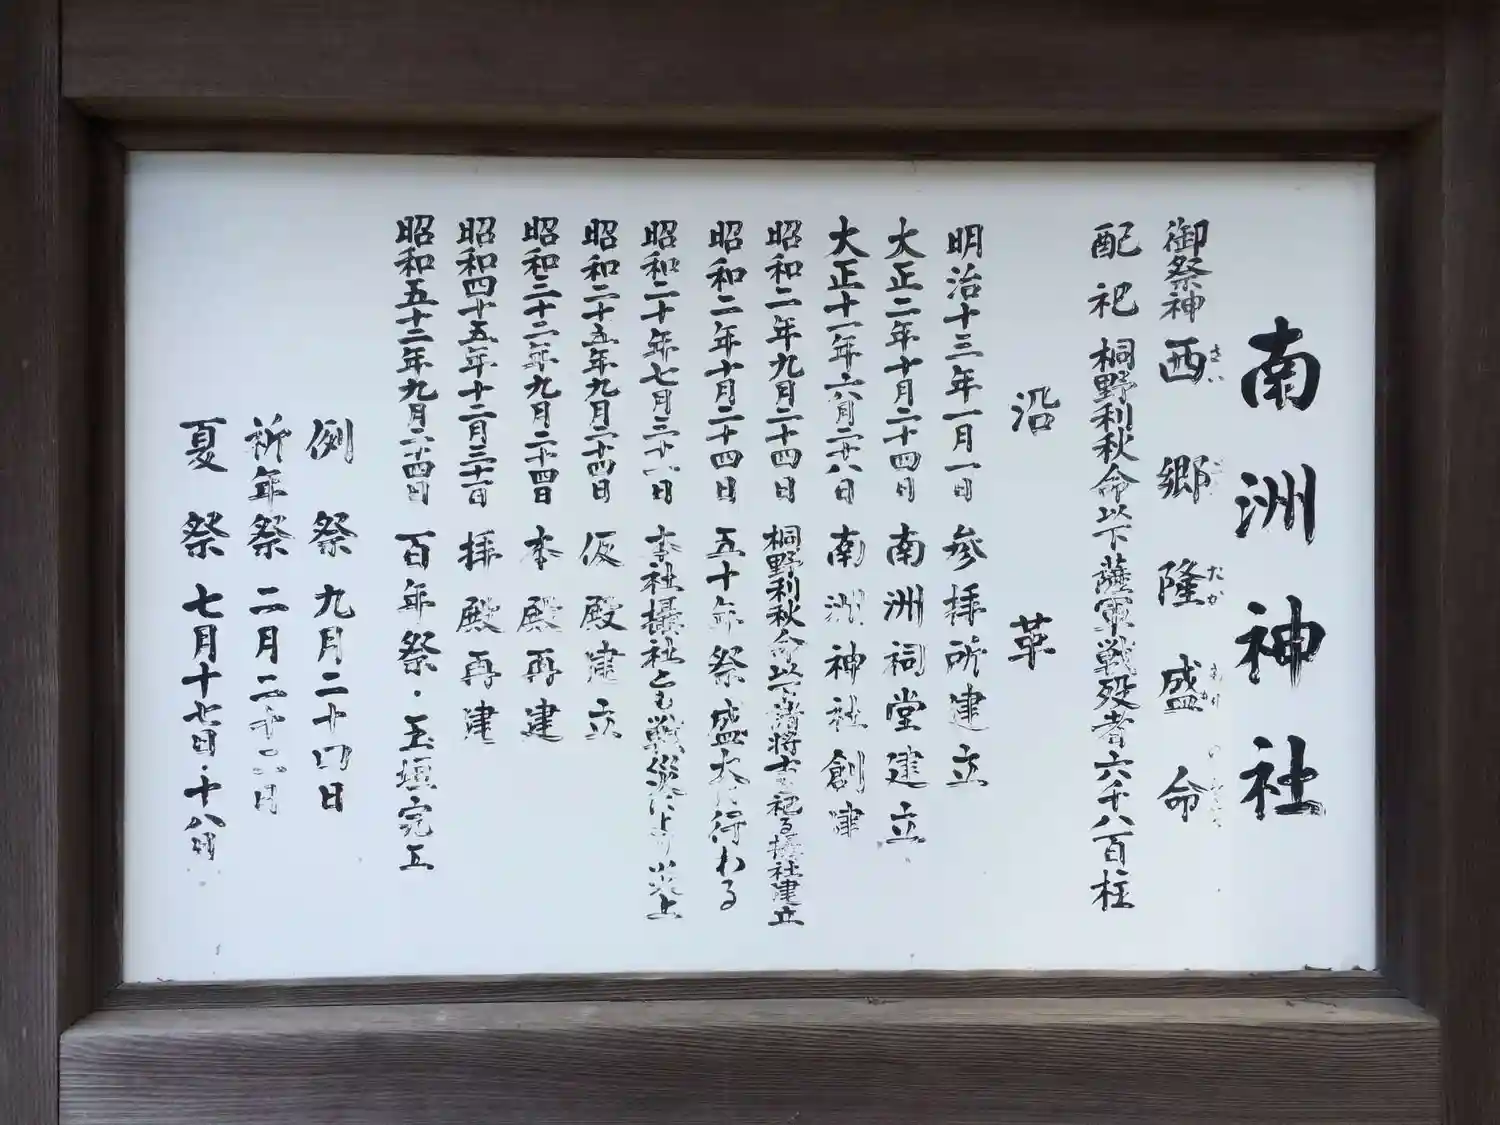 南洲神社
御祭神 西郷隆盛命
配祀 桐野利秋命以下薩軍戦歿者六千八百柱
沿革
明治十三年一月一日 参拝所建立
大正二年十月二十四日 南洲祠堂建立
大正十一年六月二十八日 南洲神社創建
昭和二年九月二十四日 桐野利秋命以下諸将士を祀る摂社建立
昭和二年十月二十四日 五十年祭盛大に行わる
昭和二十年七月三十一日 本社摂社とも戦災により炎上
昭和二十五年九月二十四日 仮殿建立
昭和三十二年九月二十四日 本殿再建
昭和四十五年十二月三十一日 拝殿再建
昭和五十二年九月二十四日 百年祭・玉垣完工
例祭 九月二十四日
祈年祭 二月二十
夏祭 七月十七日・十八日